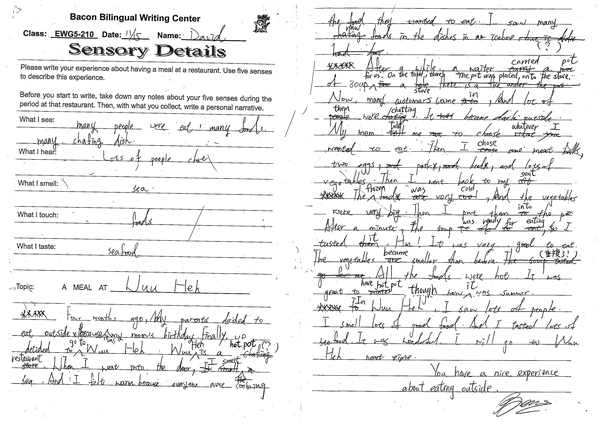 Bacon Bilingual Writing Center
Class: EWG5-210 Date: 11/5 Name: David
Sensory Details
Please write your experience about having a meal at a restaurant. Use five senses
to describe this experience.
Before you start to write, take down any notes about your five senses during the
period at that restaurant. Then, with what you collect, write a personal narrative.
What I see:
many people were eat, many foods.
many chafing dish.
What I hear:
Lots of people
What I smell:
sea.
What I touch:
foods
What I taste:
seafood
Topic: A MEAL AT Wuu Heh
Four months ago, My parents decided to
eat outside because my mom's birthday. Finally, we
decided to go to Wuu Heh. Wuu Heh is a hot pot (?)
restaurant When I went into the door, I smelt
sea. And I felt warm because everyone were cooking
the food they wanted to eat. I saw many
foods in the dishes in an icebox
(?)
After a while, a waiter carried a pot
of soup for us. On the table, there The pot was placed, onto the stove.
Now, many customers came in, And lots of
them chatting. It became dark outside.
My mom told me to choose whatever I
wanted to eat. Then I chose one meat
two eggs, pork, and lots of
vegetables. Then I went back to my seat
The frozen foods was very cold, And the vegetables
were very big. Then I put them into the pot
After a minute, the soup was ready for eating so I
tasted it. Hm! It was very good to eat.
The vegetables became smaller than before
All the foods were hot It was
great to have hot pot though now it was summer.
In Wuu Heh, I saw lots of people.
I smell lots of good food. And I tasted lots of
seafood. It was wonderful. I will go to Wuu
Heh more
You have a nice experience
about eating outside.